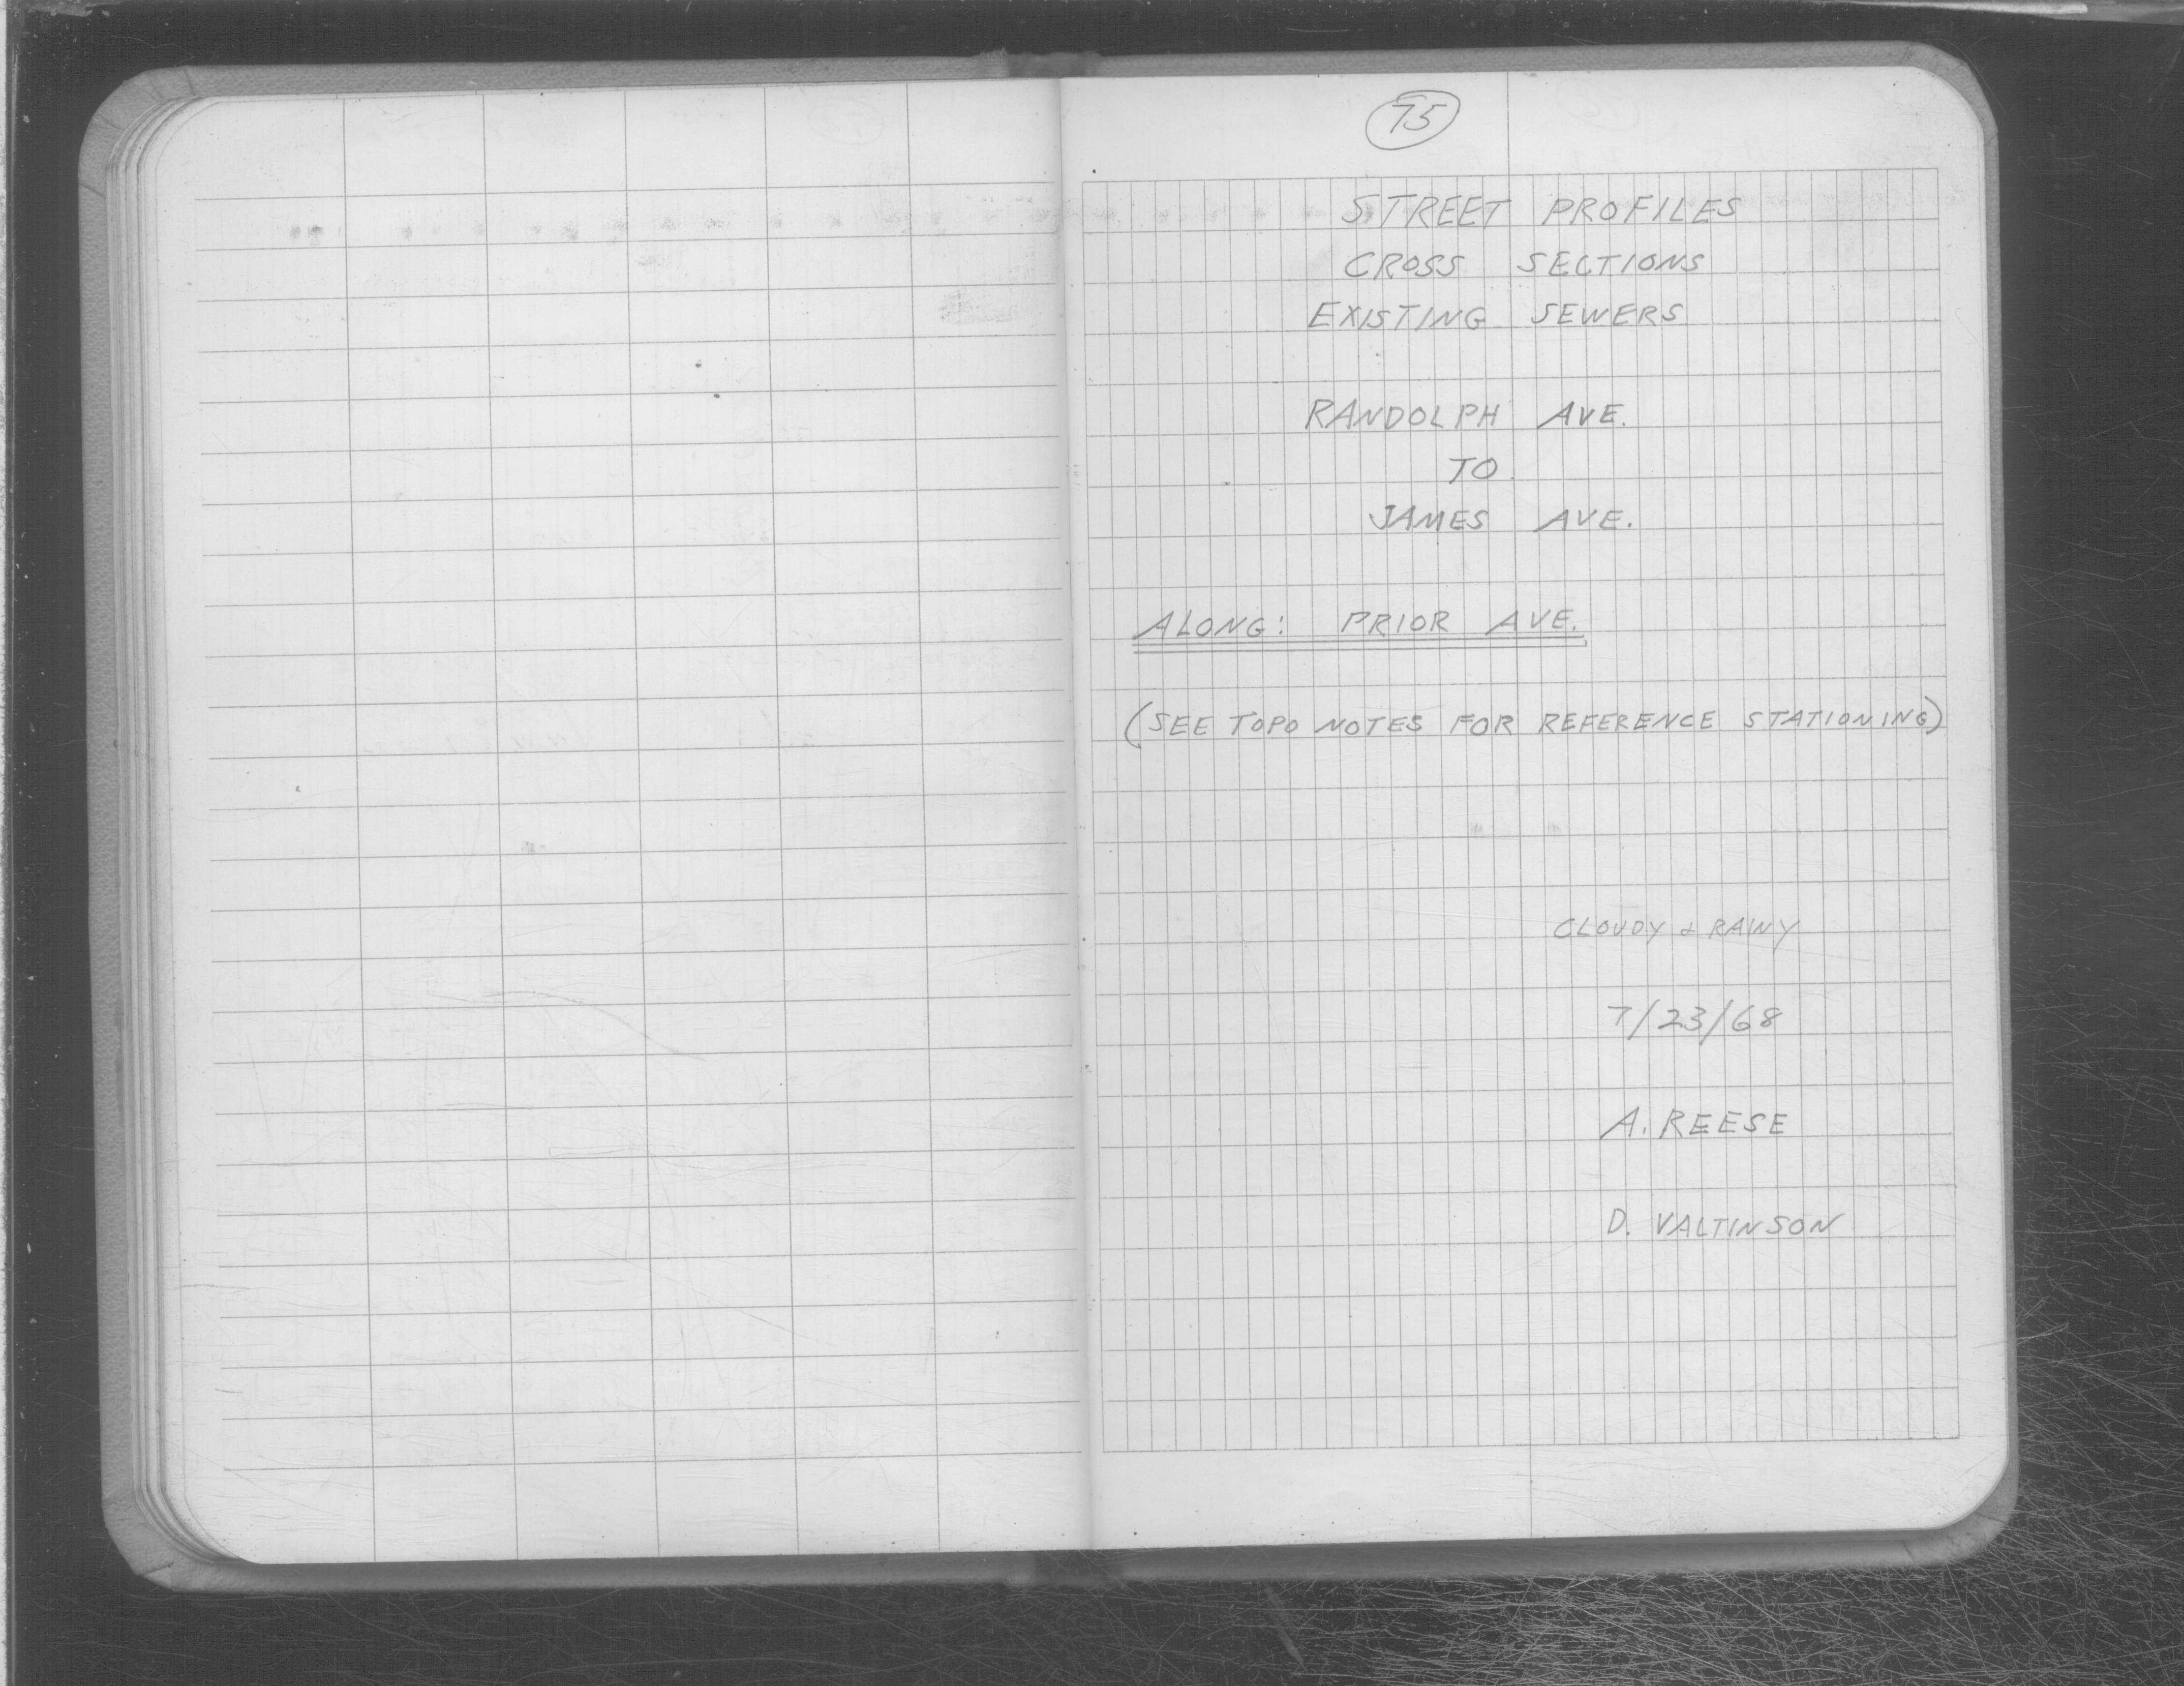 75
STREET PROFILES
CROSS SECTIONS
EXISTING SEWERS
RANDOLPH AVE.
TO
JAMES AVE.
ALONG: PRIOR AVE.
(SEE TOPO NOTES FOR REFERENCE STATIONING)
CLOUDY & RAINY
7/23/68
A. REESE
D. VALTINSON